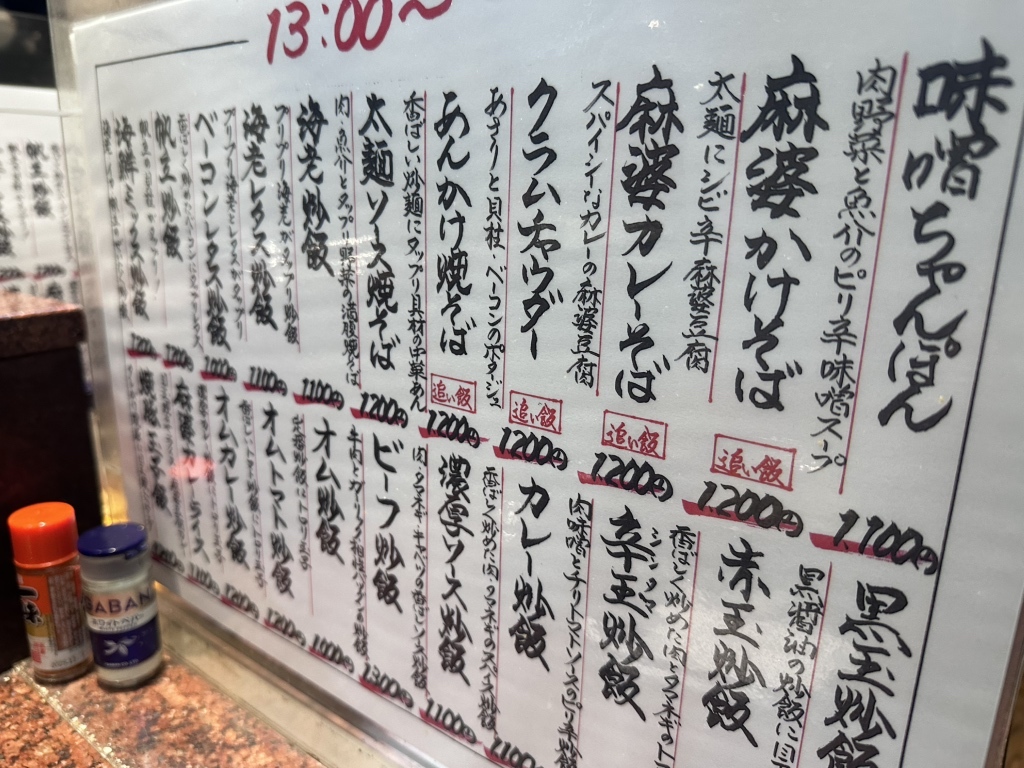 13:00〜
味噌ちゃんぽん
肉野菜と魚介のピリ辛味噌スープ
1.100円
麻婆かけそば
太麺にシビ辛麻婆豆腐
追い飯
1.200円
麻婆カレーそば
スパイシーなカレーの麻婆豆腐
追い飯
1.200円
クラムチャウダー
あさりと貝柱、ベーコンのポタージュ
追い飯
1200円
あんかけ焼そば
香ばしい炒麺にタップリ具材の中華あん
追い飯
1200円
太麺ソース焼そば
肉、魚介とタップリ野菜の満腹焼そば
1200円
海老炒飯
プリプリ海老がタップリ炒飯
1100円
海老レタス炒飯
1100円
ベーコンレタス炒飯
1000円
帆立炒飯
1200円
海鮮ミックス炒飯
1200円
黒玉炒飯
黒醤油の炒飯に目玉
赤玉炒飯
香ばしく炒めた肉と
辛玉炒飯
肉味噌とチリトマトソースのピリ辛炒飯
カレー炒飯
香ばしく炒めた肉、タマネギのスパイス炒飯
1100円
濃厚ソース炒飯
肉、タマネギ、キャベツの香ばしソース炒飯
1100円
ビーフ炒飯
1300円
オム炒飯
1000円
オムトマト炒飯
1200円
オムカレー炒飯
1200円
ホワイトペパー